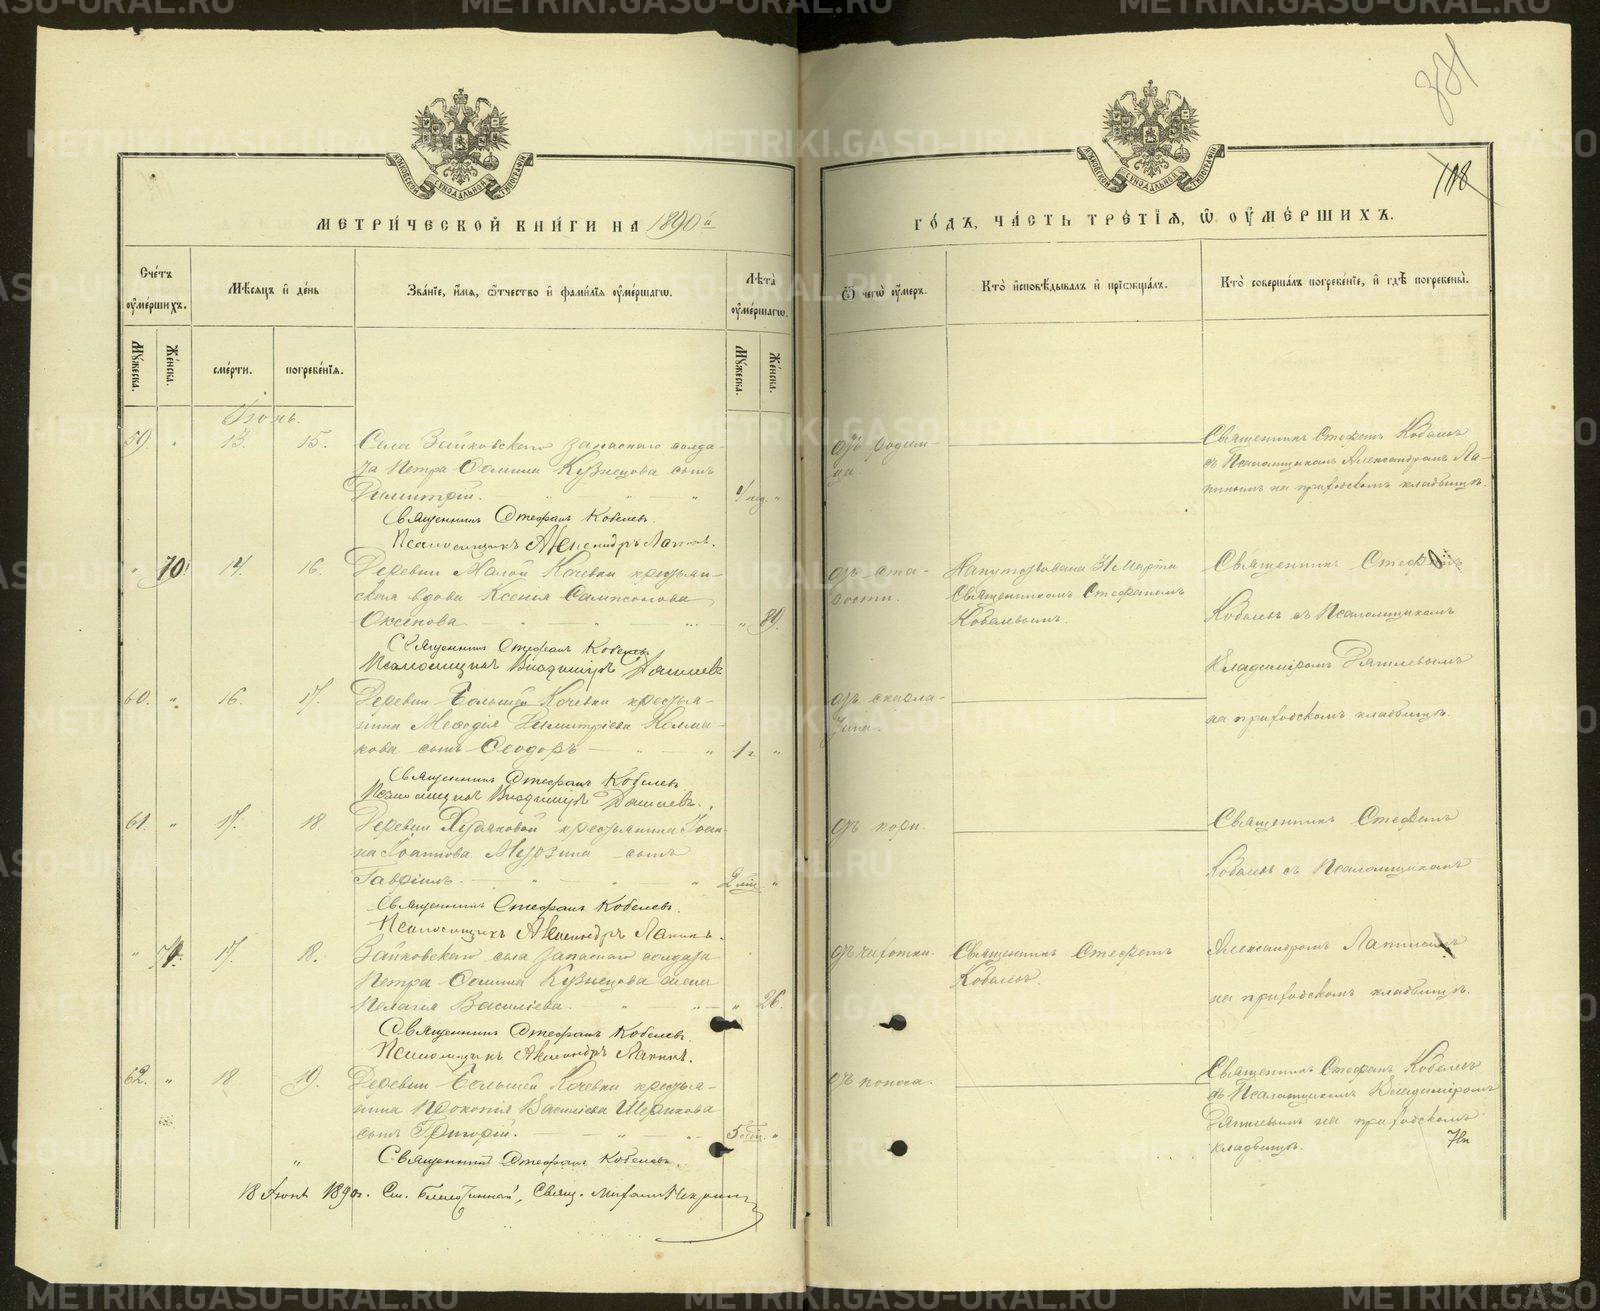 381
118
МОСКОВСКОЙ СѴНОДАЛЬНОЙ ТИПОГРАФІИ
МОСКОВСКОЙ СѴНОДАЛЬНОЙ ТИПОГРАФІИ
МЕТРИ́ЧЕСКОЙ КНИ́ГИ НА 1890й
ГО́ДЪ, ЧА́СТЬ ТРЕ́ТІѦ, Ѽ ОУ҆МЕ́РШИХЪ.
Сче́тъ оу҆ме́ршихъ.
Мꙋ́жеска.
Же́нска.
Мѣ́сѧцъ и҆ де́нь
сме́рти.
погребе́нїѧ.
Зва́нїе, и҆́мѧ, ѻ҆́тчество и҆ фами́лїѧ оу҆ме́ршагѡ.
Лѣ́та оу҆ме́ршагѡ.
Мꙋ́жеска.
Же́нска.
Ѿ чегѡ̀ оу҆́меръ.
Кто̀ и҆сповѣ́дывалъ и҆ прїѡбща́лъ.
Кто̀ соверша́лъ погребе́нїе, и҆ гдѣ̀ погребены̀.
Іюнь.
59. " 13. 15. Села Зайковскаго запаснаго солда-
та Петра Ѳомина Кузнецова сынъ
Димитрій. " " "
Священникъ Стефанъ Кобелевъ.
Псаломщикъ Александръ Лапинъ.
отъ родим-
ца.
Священникъ Стефанъ Кобелевъ
съ Псаломщикомъ Александромъ Ла-
пинымъ на приходскомъ кладбищѣ.
" 70. 14. 16. Деревни Малой Кочевки крестьян-
ская вдова Ксенія Сампсонова
Оксенова " 89.
Священникъ Стефанъ Кобелевъ
Псаломщикъ Владиміръ
отъ ста-
рости.
Напутствована 31 Марта
Священникомъ Стефаномъ
Кобелевымъ.
Священникъ Стефанъ
Кобелевъ съ Псаломщикомъ
Владиміромъ
на приходскомъ кладбищѣ.
60. " 16. 17. Деревни Большей Кочевки крестья-
нина Меѳодія Димитріева
сынъ Ѳеодоръ " " 1 г. "
Священникъ Стефанъ Кобелевъ
Псаломщикъ Владиміръ
отъ скарла-
тины.
61. " 17. 18. Деревни Худяковой крестьянина Іоан-
на Іоаннова Мурзина сынъ
Гавріилъ. " " 2 мѣс. "
Священникъ Стефанъ Кобелевъ.
Псаломщикъ Александръ Лапинъ.
отъ кори.
Священникъ Стефанъ
Кобелевъ съ Псаломщикомъ
Александромъ Лапинымъ
на приходскомъ кладбищѣ.
" 71. 17. 18. Зайковскаго села запаснаго солдата
Петра Ѳомина Кузнецова жена
Пелагія Васильева. " " 26.
Священникъ Стефанъ Кобелевъ.
Псаломщикъ Александръ Лапинъ.
отъ чахотки.
Священникъ Стефанъ
Кобелевъ.
62. " 18 19. Деревни Большей Кочевки крестья-
нина Прокопія Васильева Щерикова
сынъ Григорій. " "
Священникъ Стефанъ Кобелевъ.
отъ поноса.
Священникъ Стефанъ Кобелевъ
съ Псаломщикомъ Владиміромъ
на приходскомъ
кладбищѣ.
18 Іюня 1890 г. См. Благочинный, Свящ.
METRIKI.GASO-URAL.RU